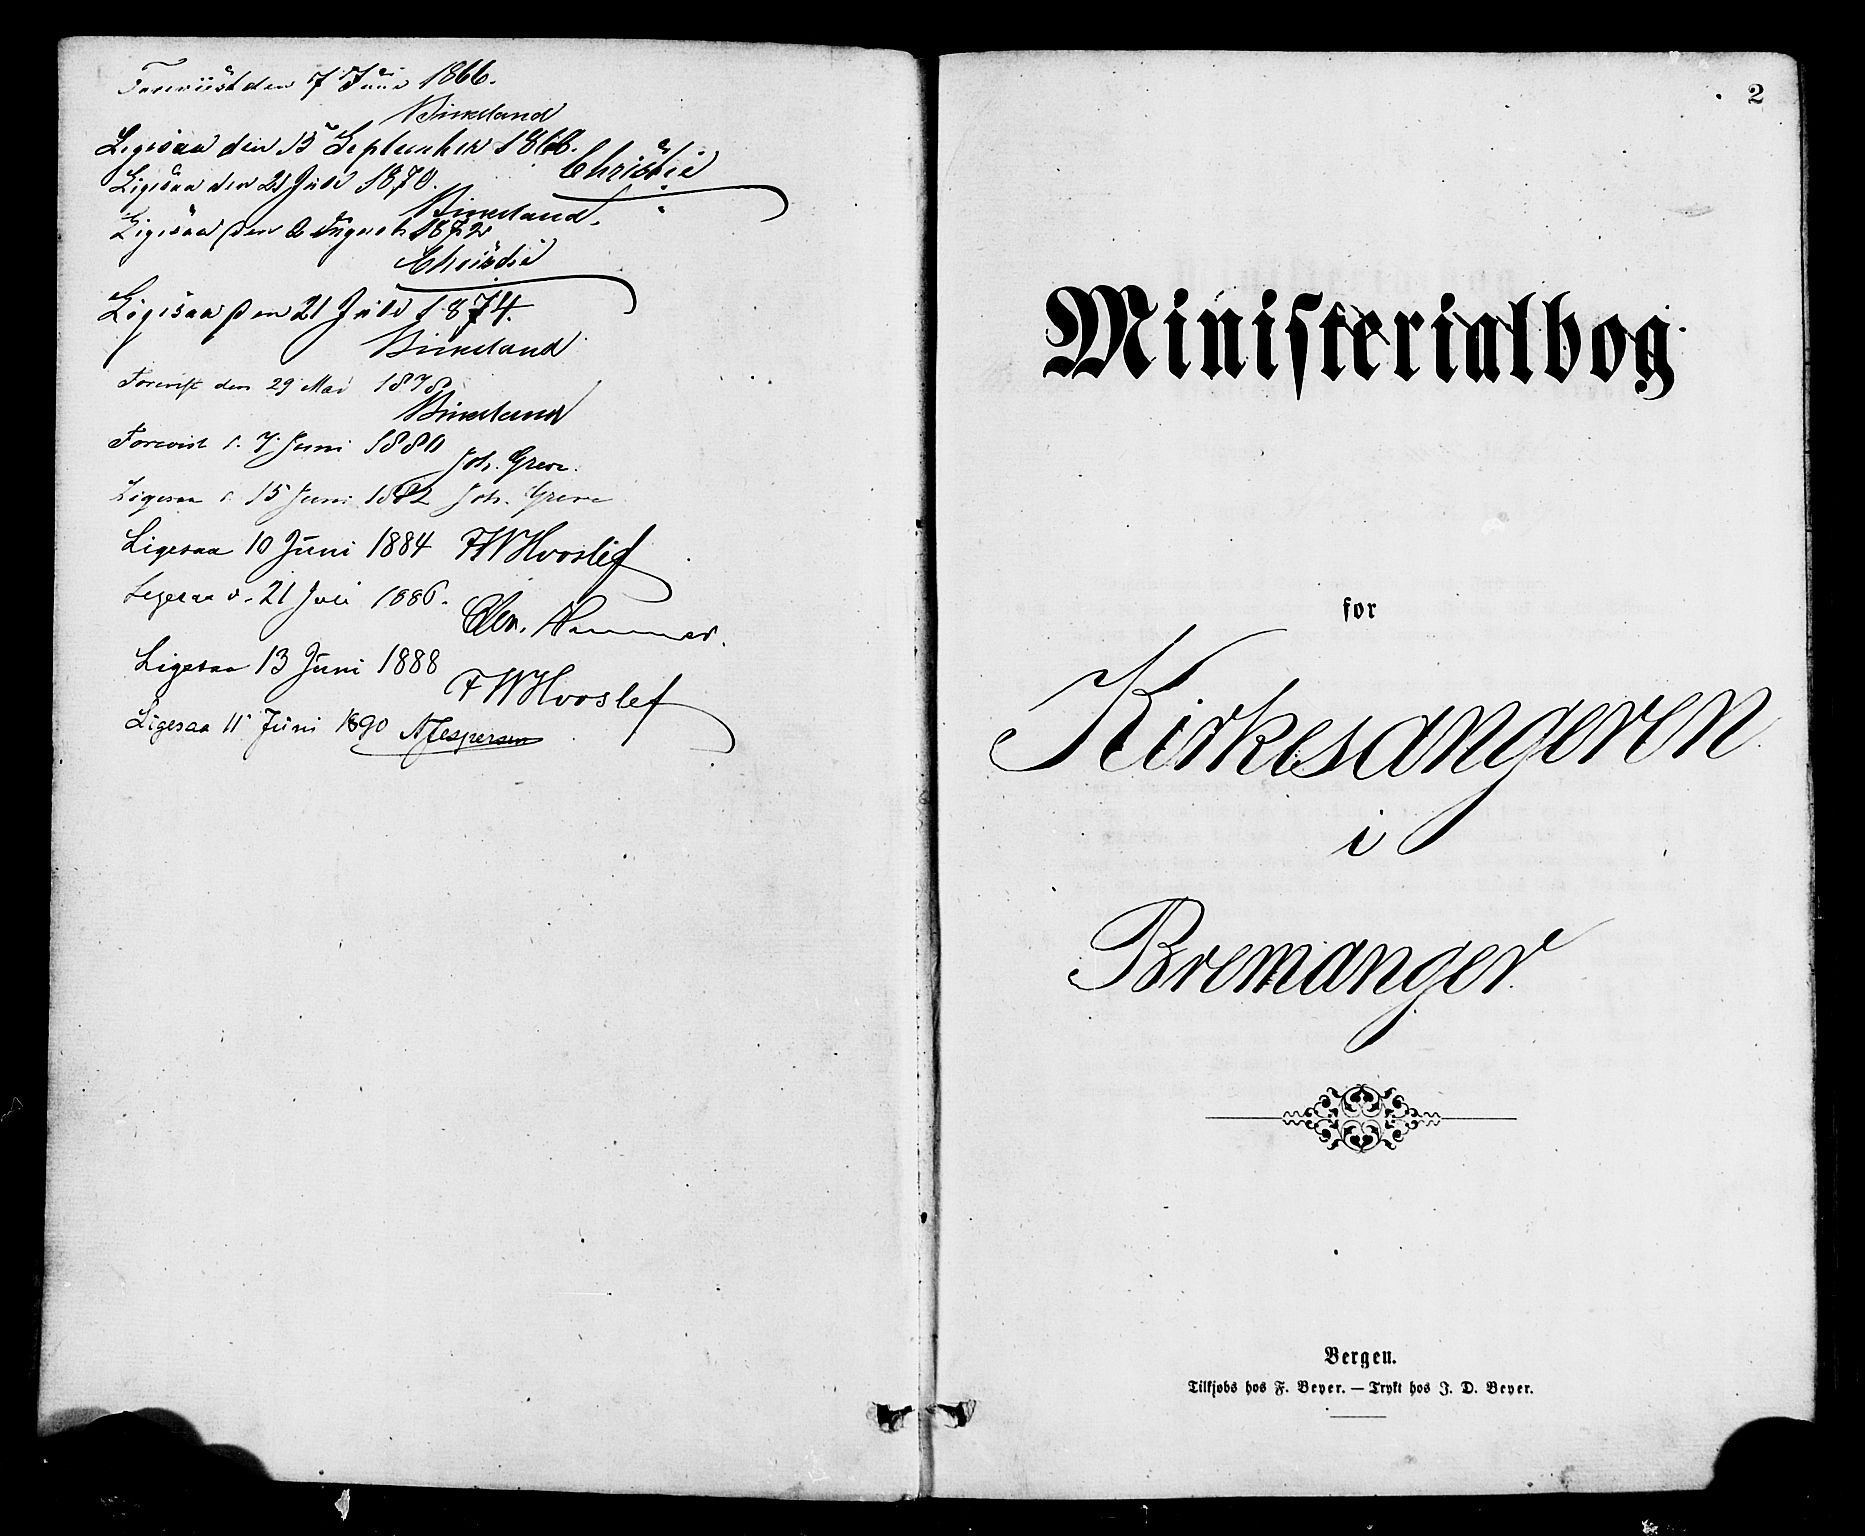 Foreviist den 7 Juni 1866.
Birkeland
Ligesaa den 15 September 1868.
Christie
Ligesaa den 21 Juli 1870.
Birkeland.
Ligesaa den 6 August 1872
Christie
Ligesaa den 21 Juli 1874.
Birkeland
Forevist den 29 Mai 1878
Birkeland
Forevist d. 7 Juni 1880
Joh. Greve.
Ligesaa d. 15 Juni 1882 Joh. Greve
Ligesaa 10 Juni 1884 FWHvoslef
Ligesaa d. 21 Juli 1886.
Chr. Hammer.
Ligesaa 13 Juni 1888
FWHvoslef
Ligesaa 11 Juni 1890 NJespersen
2
Ministerialbog
for
Kirkesangeren
i
Bremanger.
Bergen.
Tilkjøbs hos F. Beyer. — Trykt hos J. D. Beyer.